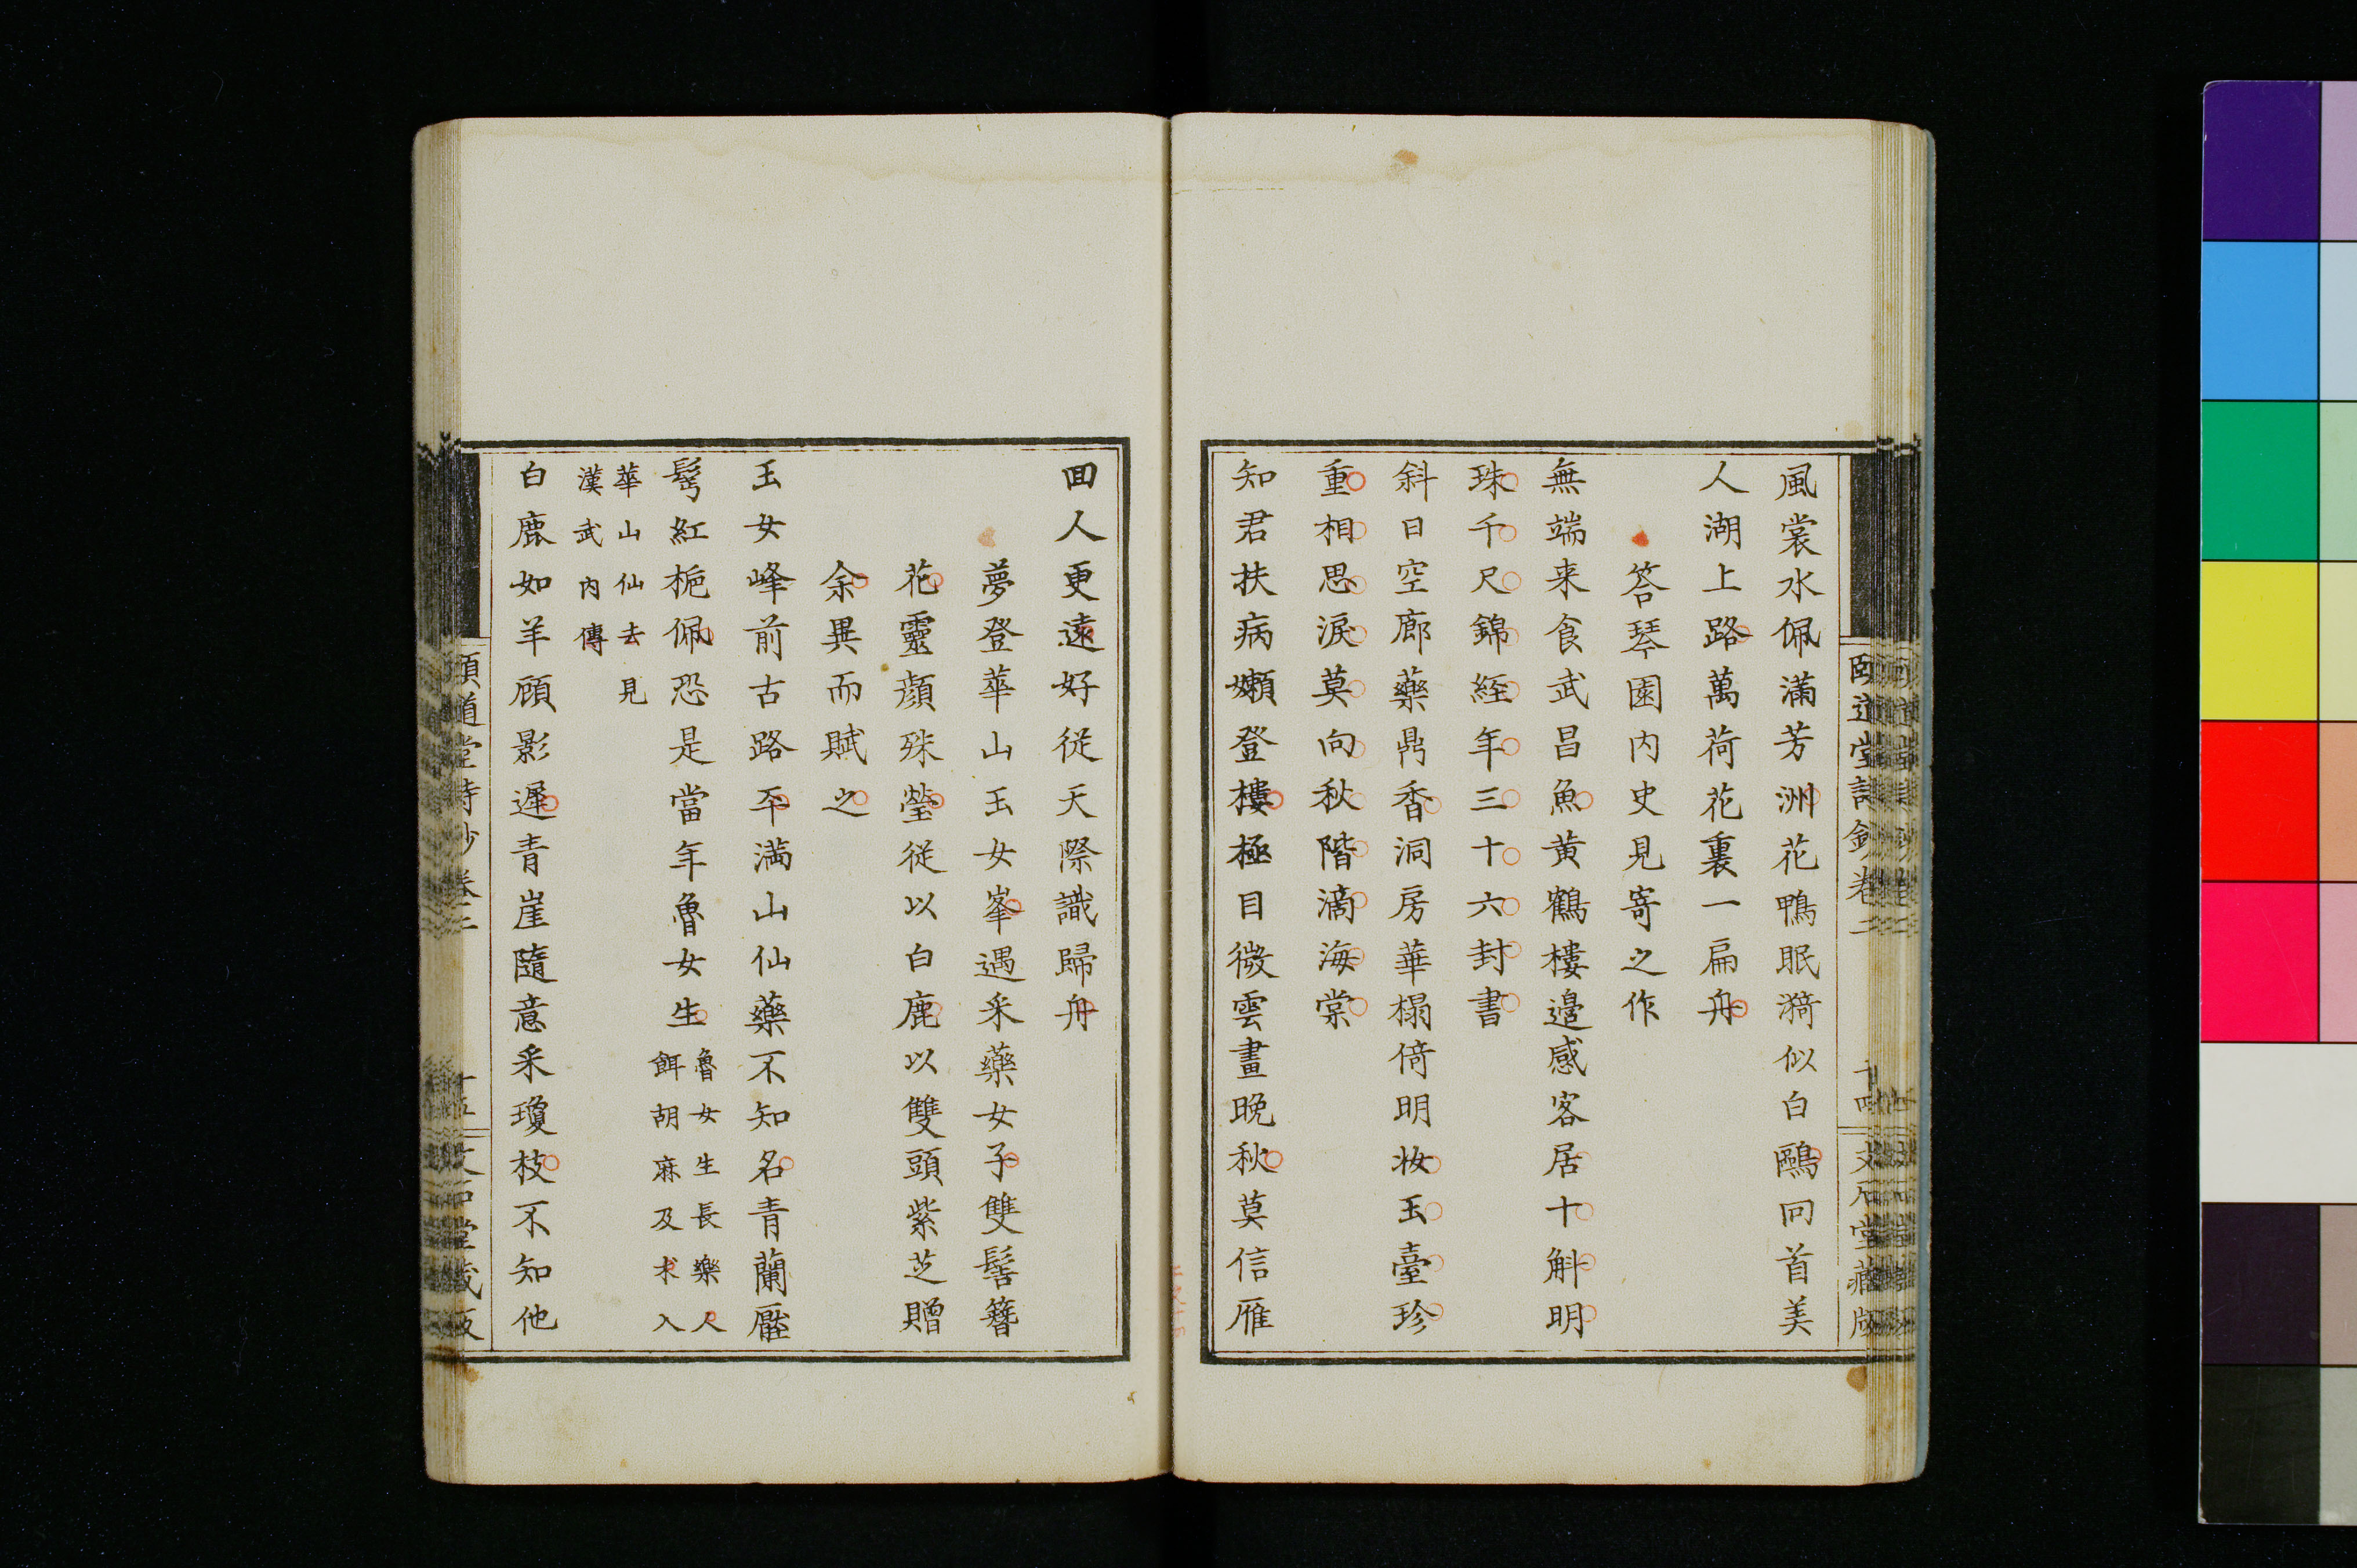 風裳水佩滿芳洲花鴨眠漪似白鷗回首美
人湖上路萬荷花裏一扁舟
答琴園内史見寄之作
無端来食武昌魚黄鶴樓邊感客居十斛明
珠千尺錦經年三十六封書
斜日空廊藥鼎香洞房華榻倚明妝玉臺珍
重相思淚莫向秋階滴海棠
知君扶病嬾登樓極目微雲畫晚秋莫信雁
回人更遠好従天際識歸舟
夢登華山玉女峯遇采藥女子雙髻簪
花靈顔殊瑩従以白鹿以雙頭紫芝贈
余異而賦之
玉女峰前古路平満山仙藥不知名青蘭壓
髩紅栀佩恐是當年魯女生
魯女生長樂人
餌胡麻及朮入
華山仙去見
漢武内傳
白鹿如羊顧影遲青崖隨意采瓊枝不知他
頤道堂詩鈔卷三
十四
文石堂藏版